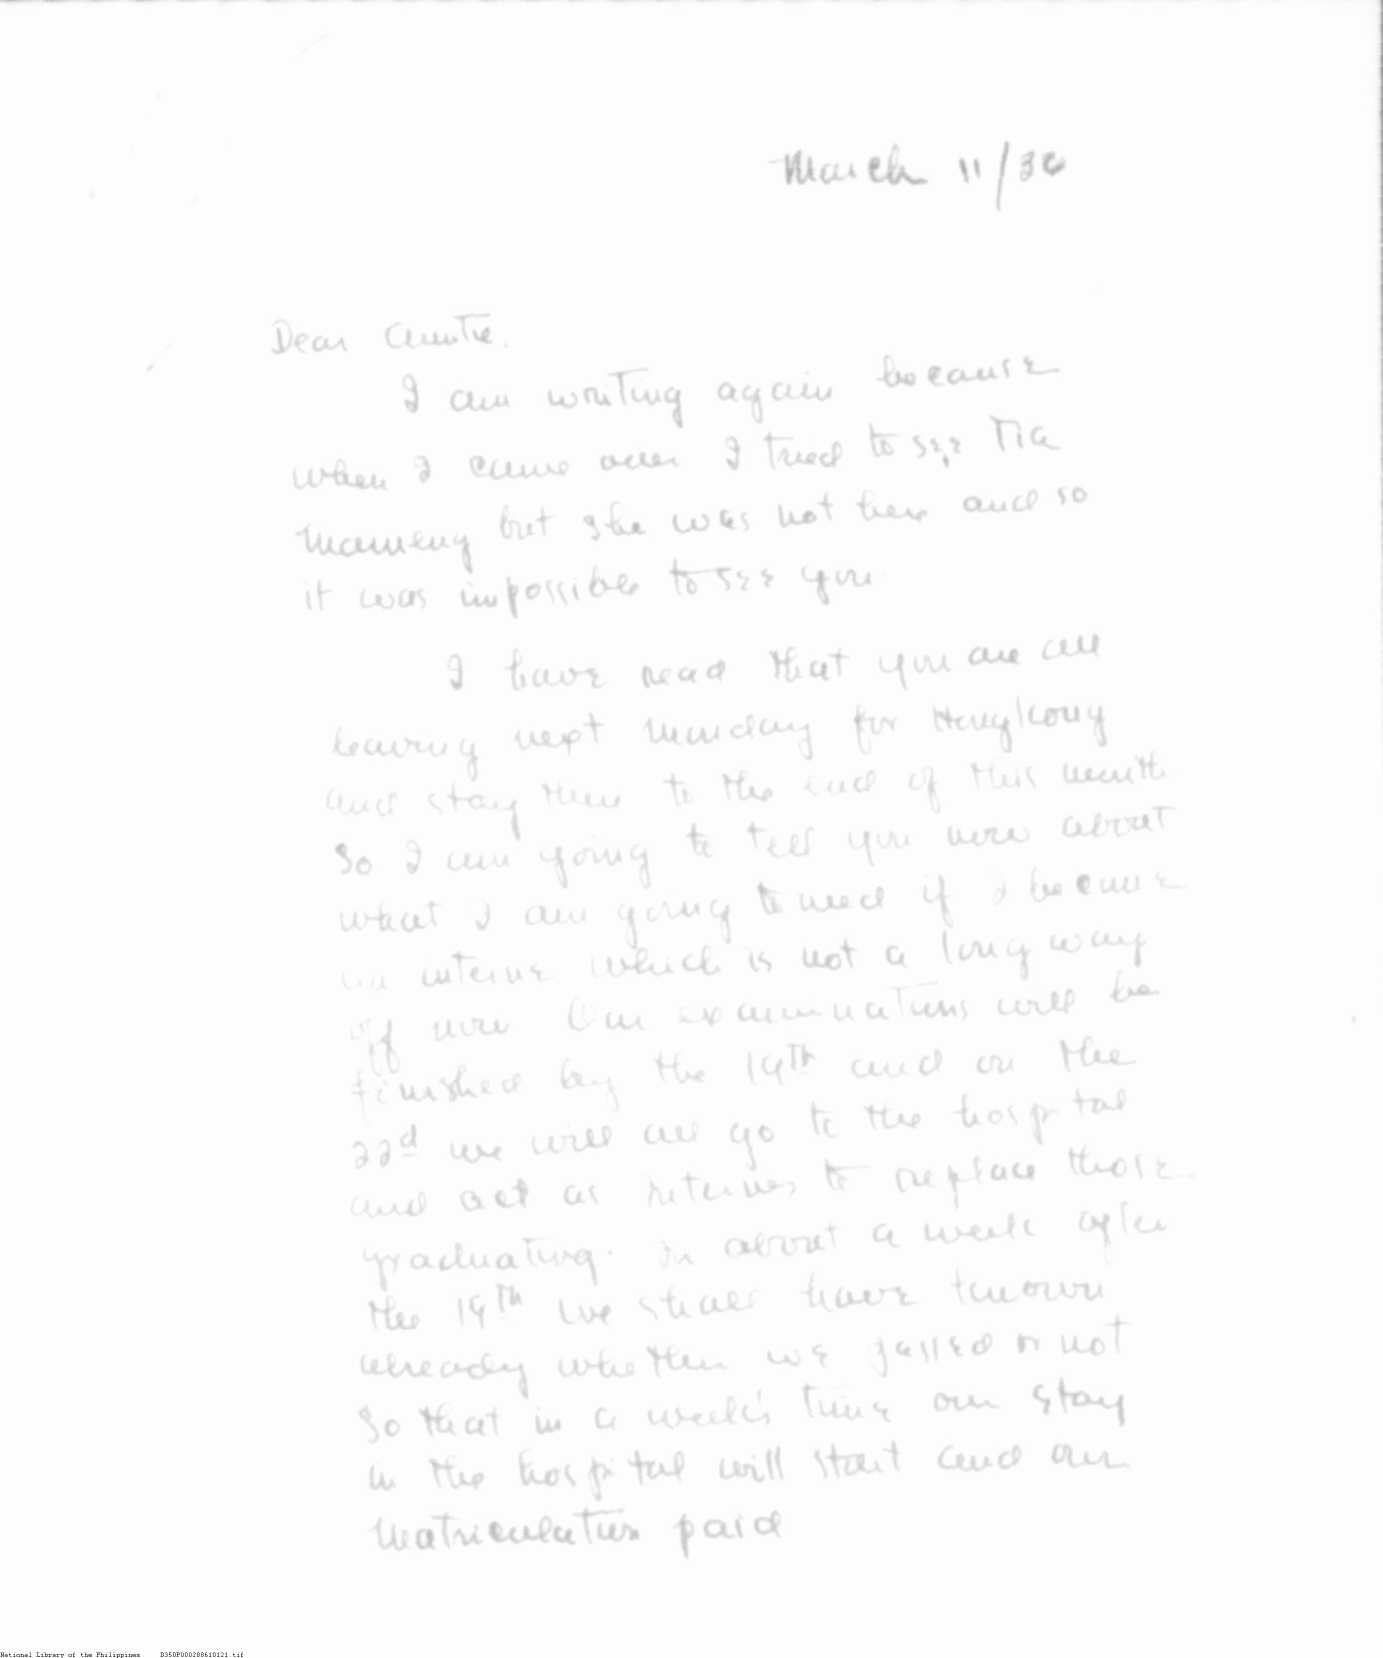 March 11/36
Dear Auntie.
I am writing again because
when I came over I tried to see Tia
Mameng but she was not here and so
it was impossible to see you
I have read that you are all
leaving next Monday for Hongkong
and stay there to the end of this month
So I am going to tell you now about
what I am going to need if I become
an interne which is not a long way
off now Our examinations will be
finished by the 19th and on the
22d we will all go to the hospital
and act as internes to replace those
graduating. In about a week after
the 19th we shall have known
already whether we passed or not
So that in a week's time our stay
in the hospital will start and our
matriculation paid
National Library of the Philippines D350P000288610121.tif